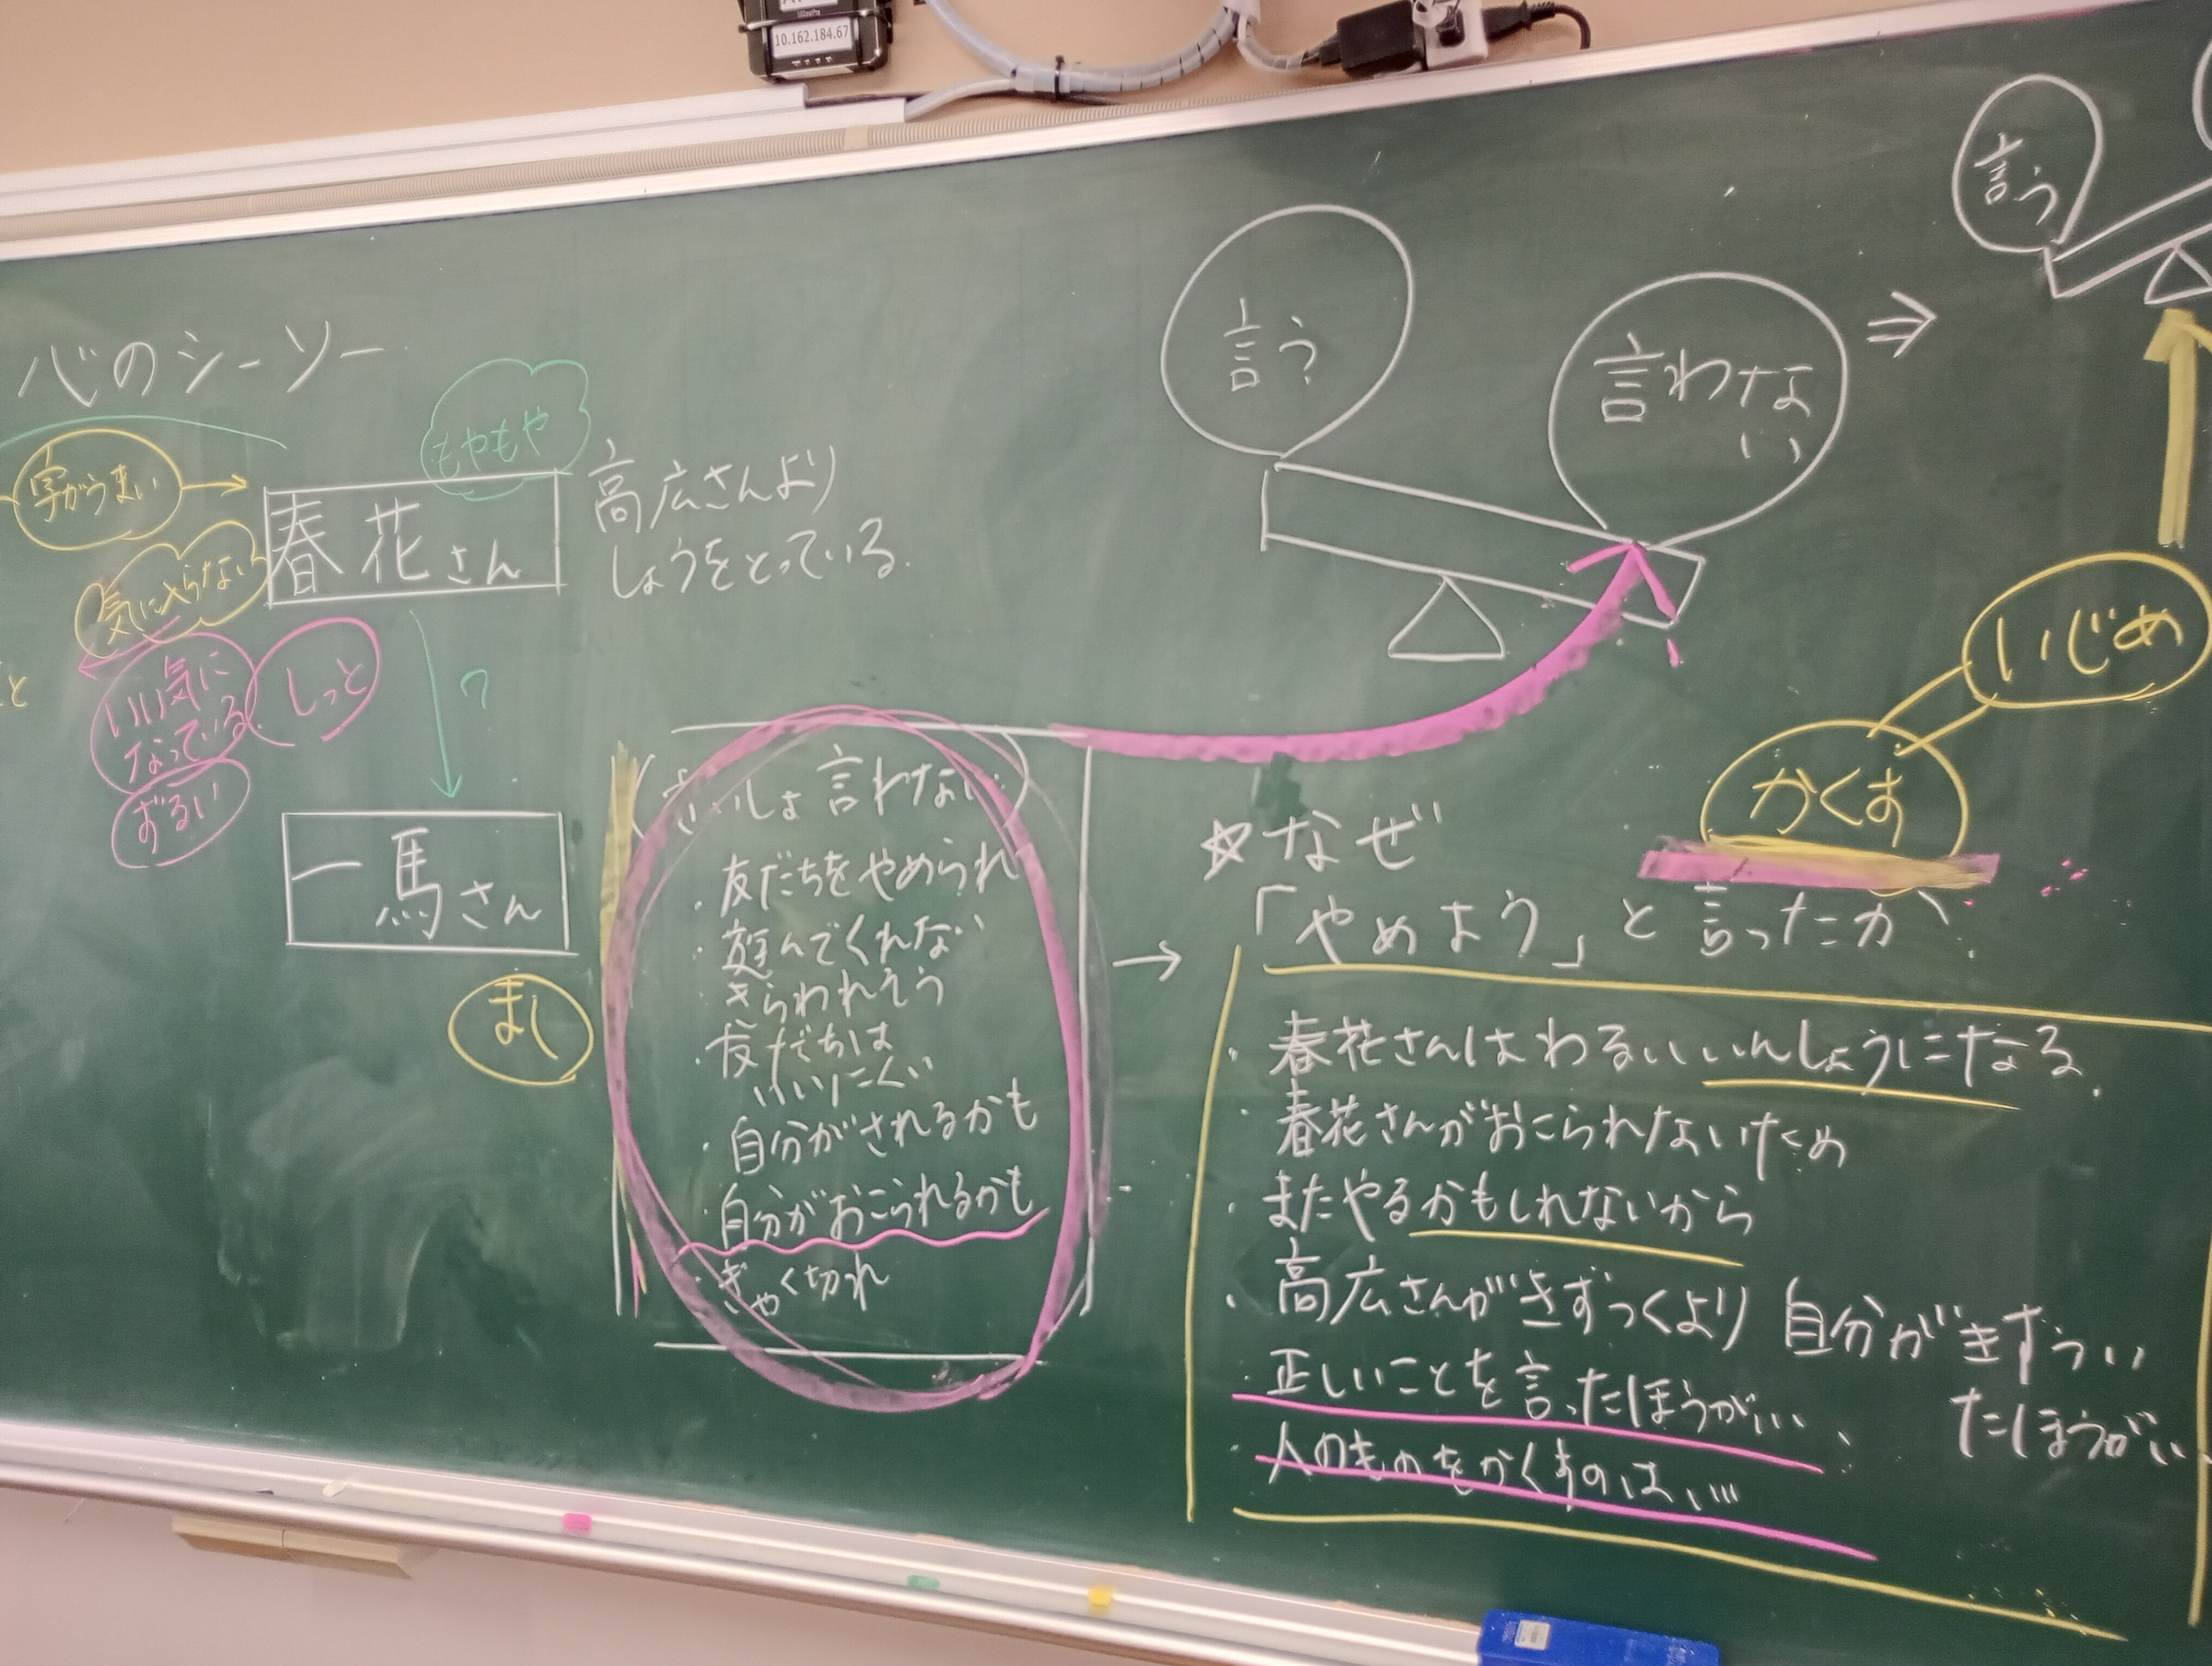 10.162.184.67
心のシーソー
字がうまい
もやもや
春花さん
高広さんより
しょうをとっている.
気に入らない
いい気に
なっている
しっと
ずるい
と
?
一馬さん
まし
言う
言わな
い
⇒
言う
さいしょ言わない
・友だちをやめられ
・遊んでくれない
きらわれそう
・友だちは
いいにくい
・自分がされるかも
・自分がおこられるかも
・ぎゃく切れ
→
いじめ
かくす
☆なぜ
「やめよう」と言ったか
・春花さんはわるいいんしょうになる.
・春花さんがおこられないため
・またやるかもしれないから
・高広さんがきずつくより自分がきずつい
たほうがい
・正しいことを言ったほうがいい
・人のものをかくすのは